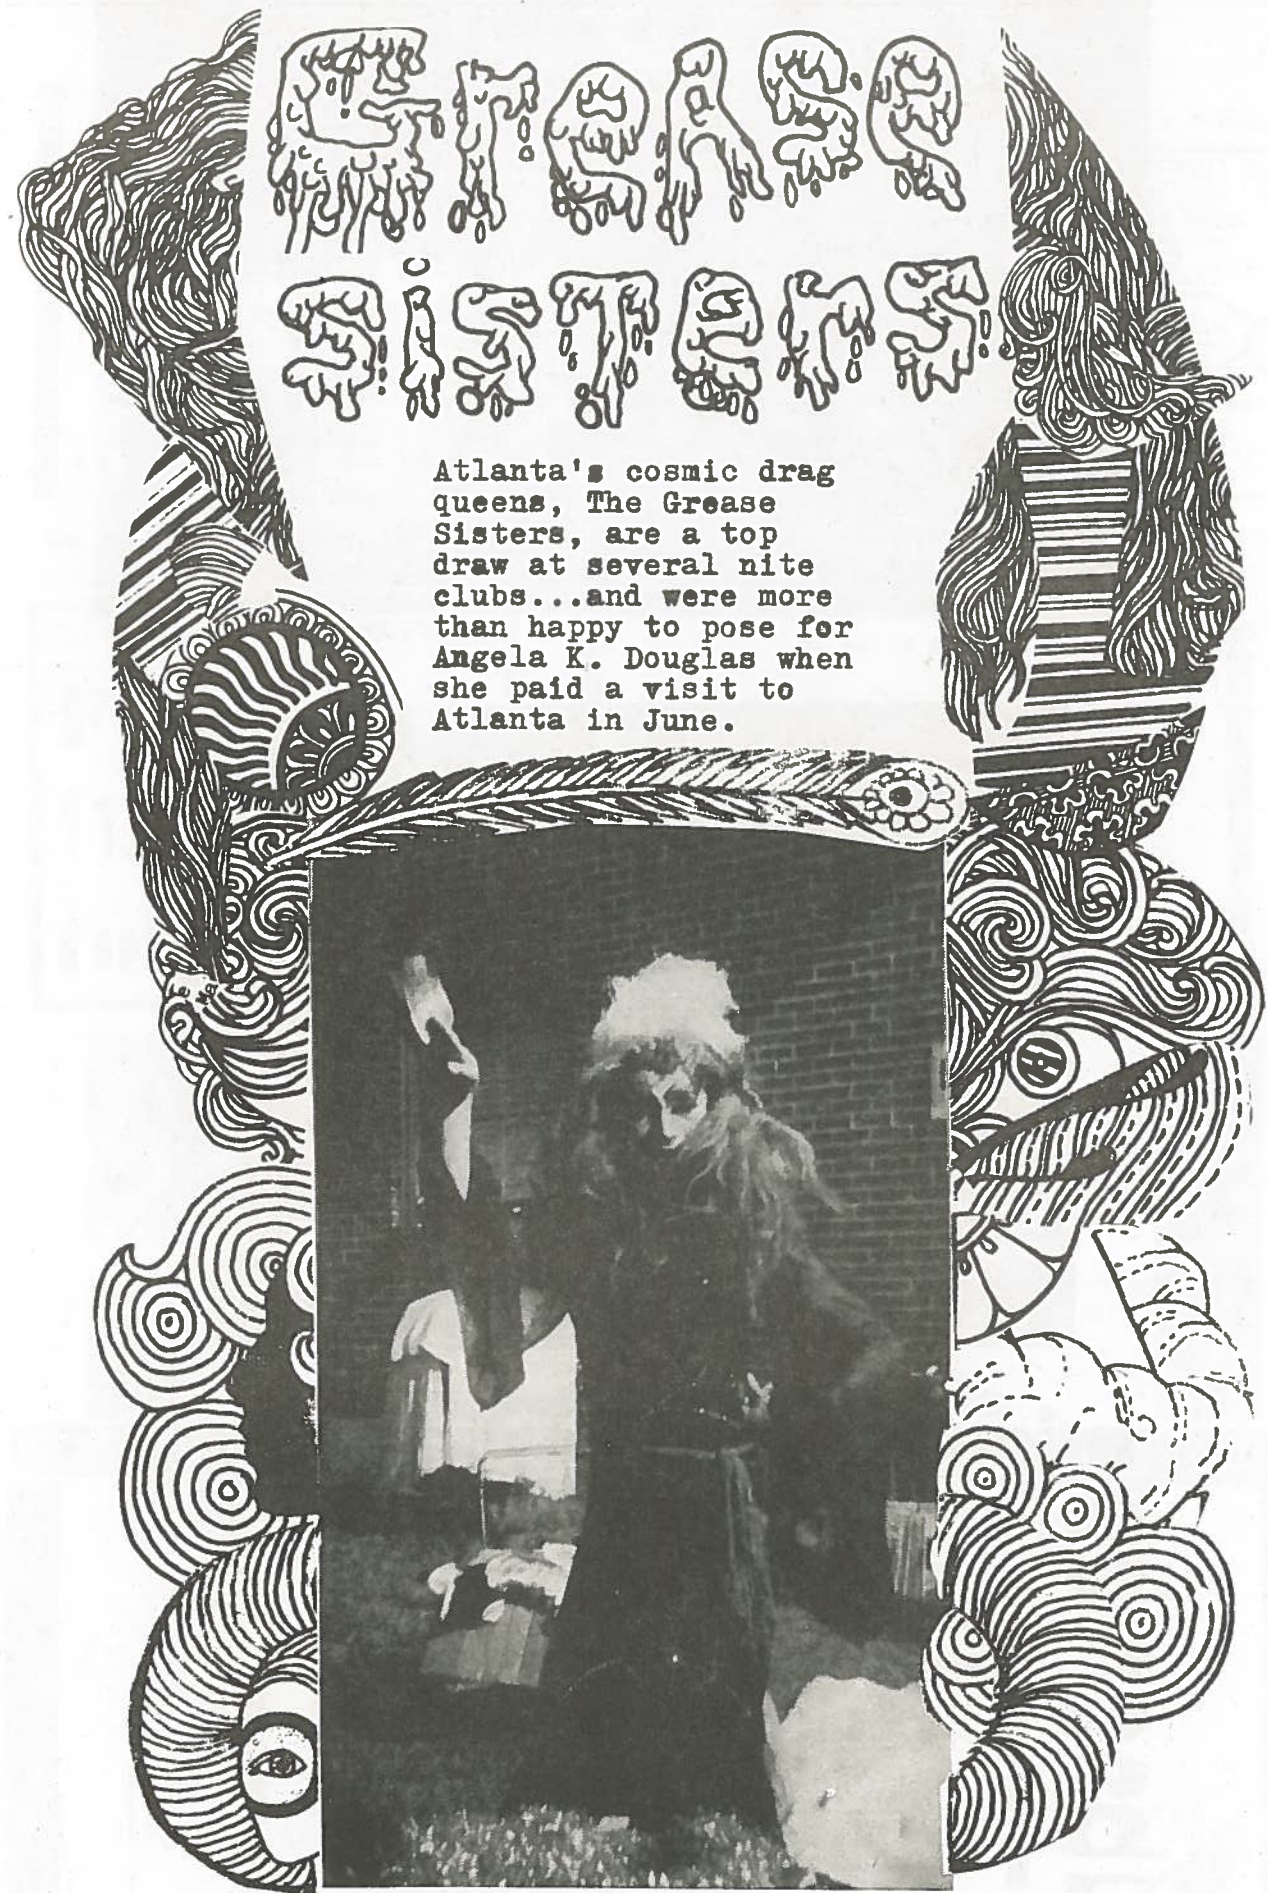 GreAse
sisTers
Atlanta's cosmic drag
queens, The Grease
Sisters, are a top
draw at several nite
clubs...and were more
than happy to pose for
Angela K. Douglas when
she paid a visit to
Atlanta in June.